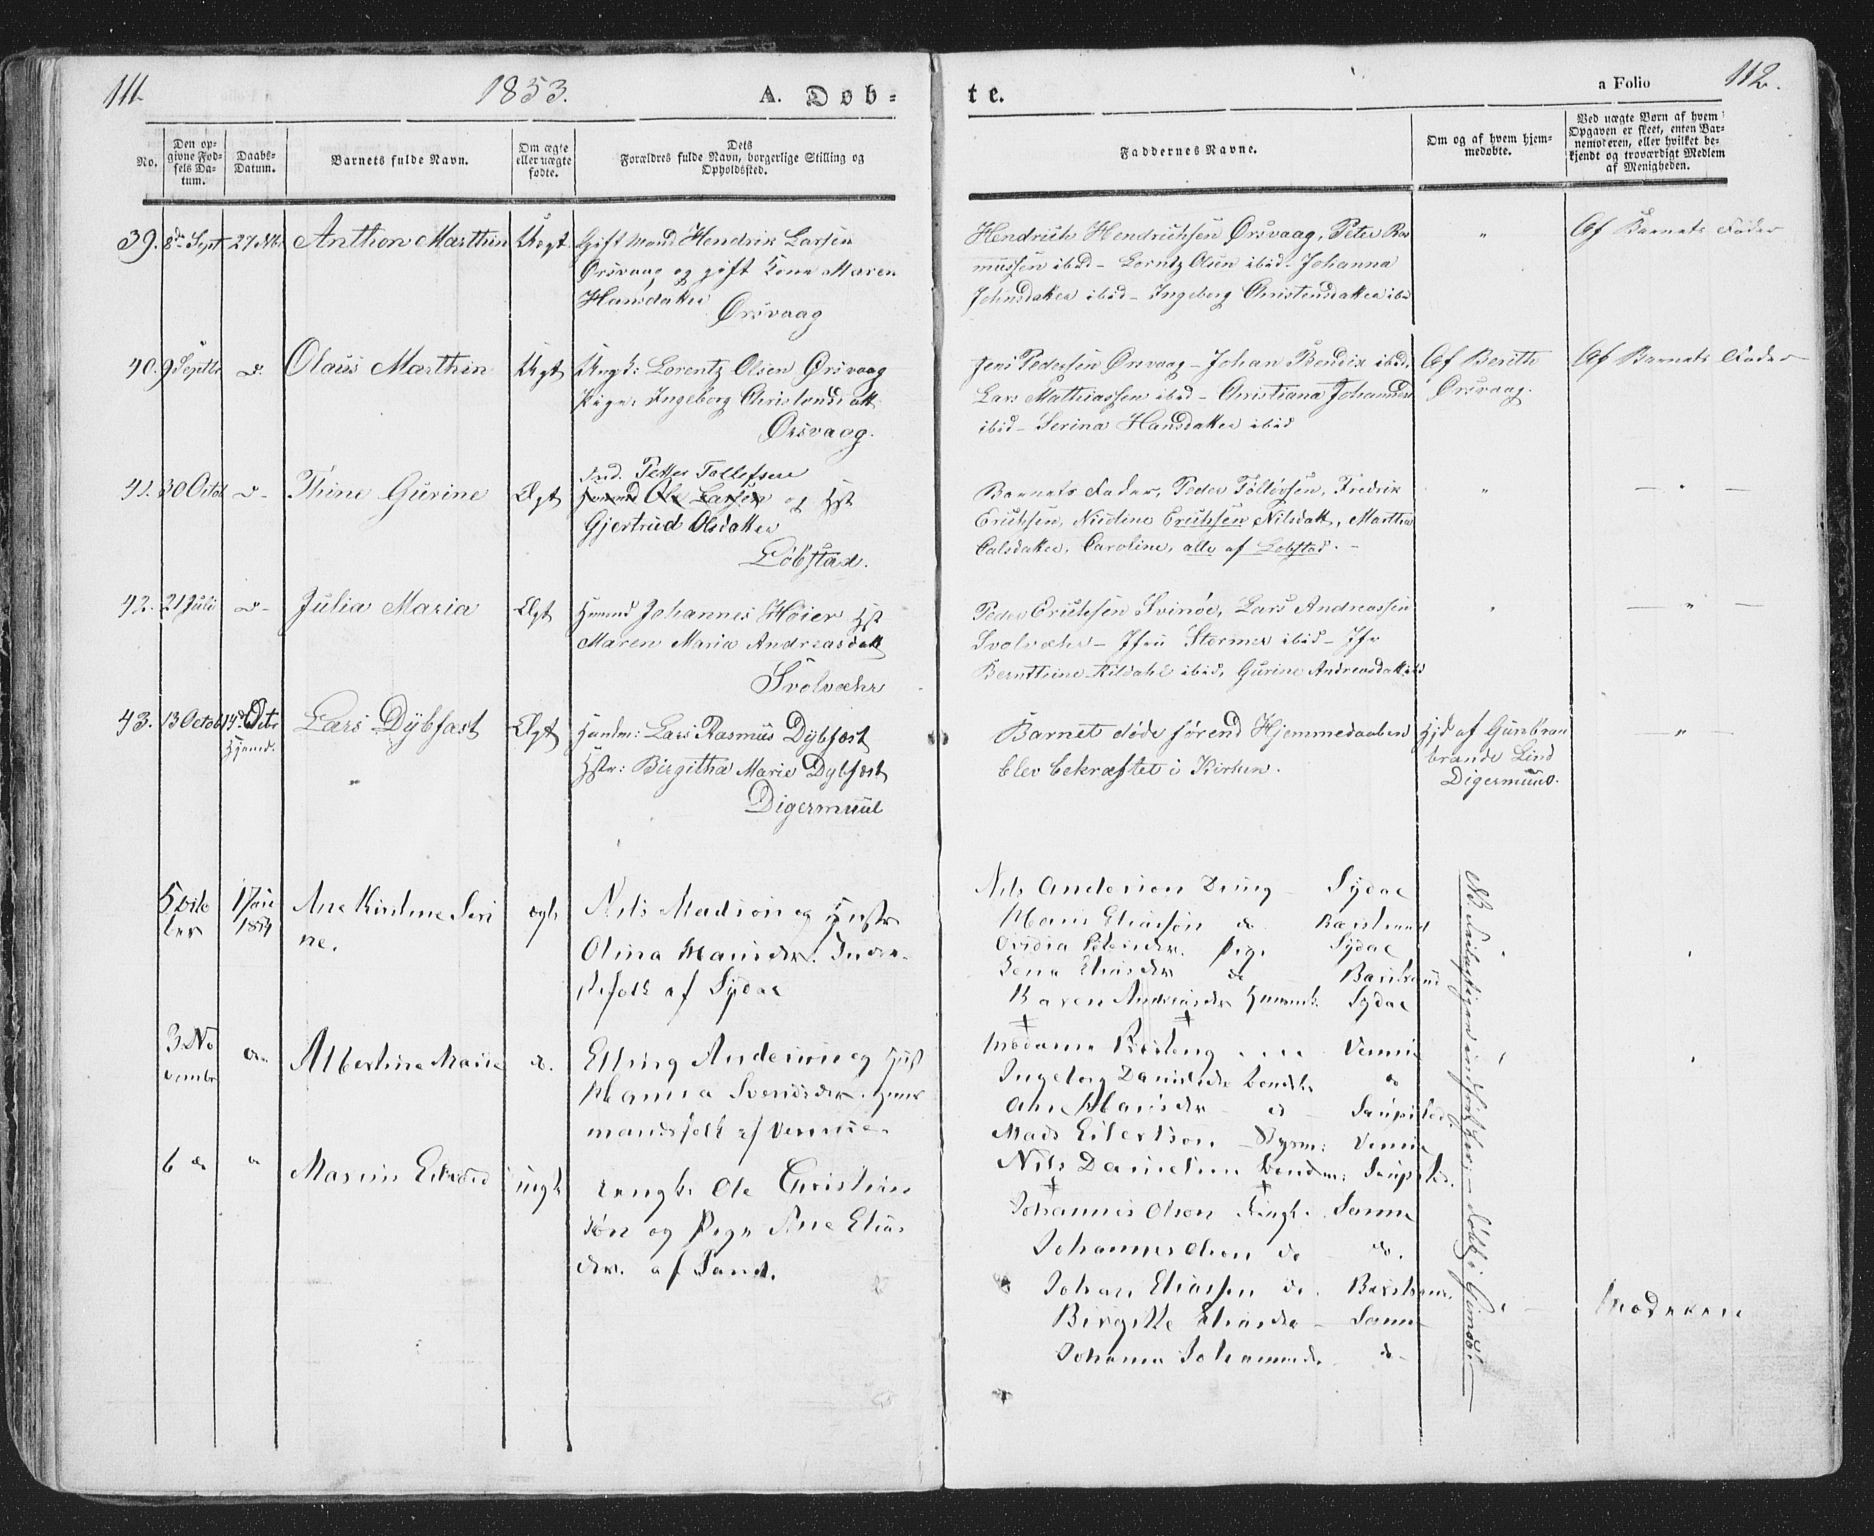 111.
1853.
A. Døb-
te.
a Folio
112.
No.
Den op-
givne Fød-
sels Da-
tum.
Daabs-
Datum.
Barnets fulde Navn.
Om ægte
eller uægte
fødte.
Dets
Forældres fulde Navn, borgerlige Stilling og
Opholdssted.
Faddernes Navne.
Om og af hvem hjem-
medøbte.
Ved uægte Børn af hvem
Opgaven er skeet, enten Bar-
nemoderen, eller hvilket be-
kjendt og troværdigt Medlem
af Menigheden.
39. 8de Sept 27 Anthon Marthin Uegt
Gift Mand Hendrik Larsen
Ørsvaag og gift Kone Maren
Hansdatter
Ørsvaag
Hendrich Hendrichsen Ørsvaag, Peter Ras
mussen ibid - Lorntz Olsen ibid. Johanna
Johnsdatter ibid - Ingeborg Christensdatter ibid
"
Af Barnets Fader
40. 9 Septbr d. Olaus Marthin Uegt
Ungk: Lorentz Olsen Ørsvaag
Pige: Ingeborg Christensdatt
Ørsvaag.
Jens Pedersen Ørsvaag - Johan Bendix ibid,
Lars Mathiassen ibid - Christiana Johannsd
ibid - Serina Hansdatter ibid
Af Berith
Ørsvaag.
Af Barnets Fader
41. 30 Octob d- Thine Gurine Egt
Ind. Petter Tollefsen
Huusmd Ole Larsen og Hst
Gjertrud Olsdatter
Løbstad.
Barnets Fader, Peder Tollefsen, Fredrik
Erichsen, Nicoline Erichsen Nilsdatt, Marthe
Calsdatter, Caroline, alle af Lobstad. -
"
- " -
42. 21 Juli d- Julia Maria Egt
Hmand Johannes Høier Hst
Maren Maria Andreasdatt
Svolvæhr
Peder Erichsen Svinøe, Lars Andreassen
Svolvæhr - Jfru Stermer ibid - Jfr
Berntine Kildahl ibid, Gurine Andreasdatt ibid
"
- " -
43. 13 Octob 14de Octr
Hjemd.
Lars Dybfæst Egt
"
Handm: Lars Rasmus Dybfæst
Hstr: Birgitha Marie Dybfæst
Digermuul
Barnet døde førend Hjemmedaaben
blev bekræftet i Kirken.
Hjd af Gunbran
brande Lind
Digermuul.
- " -
1 Jan
1854
Ane Seri
ne.
ægte
Nils Madsøn og Hustr
Olina Hansdtr. Inder-
stefolk af Sydal
Nils Anderson Dreng - Sydal
Hans Eliassøn do Bærstrand
Ovidia Pige Sydal
Jena Eliasdtr do Barstrand
Karen Andreasdtr Sydal
3 No
vembr
do Albertine Marie d.
Elling Anderson og Hust
Hanna Svendsdtr. Huus
mandsfolk af Vennie.
Madame
Ingeborg do
Ane Hansdtr - do -
Mads Eilertsøn - Styrm: Vennie
Nils Danielsen
6 do " Marius Edvard uegte
Ungk: Ole Christian
søn og Pige Ane Elias
dtr. af Sand.
Johannes Olsen Ungk. Sand
Johannes Olsen do - do.
Johan Eliassen do. Barstrand
Birgitte Eliasdtr - Sand
Johanna do-
Moderen